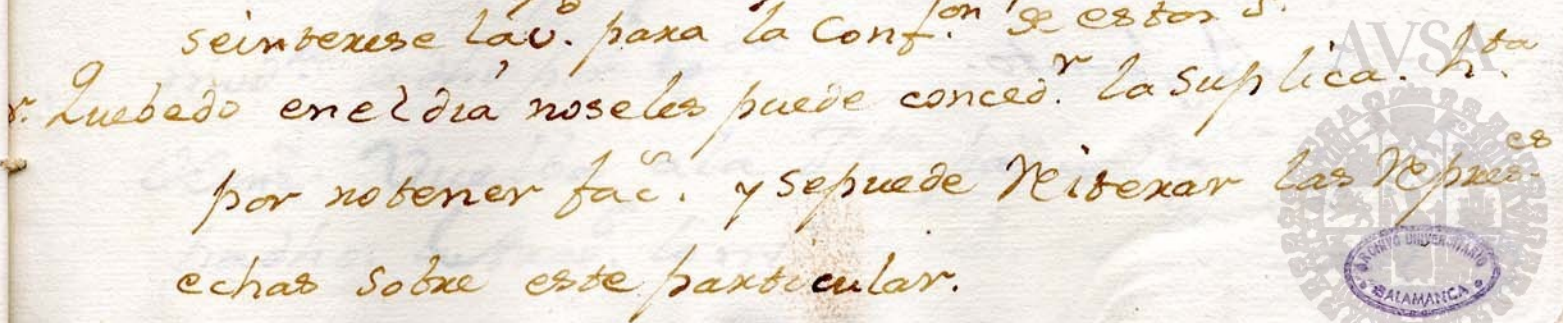 se interese la U.ᵈ para la Conf.ᵒⁿ de estos S.
r. Quebedo en el dia no se les puede conced.ʳ la Suplica. h.ᵗᵃ
por no tener fac.ˢ y se puede Reiterar las Repres.ᵉˢ
echas Sobre este particular.
AVSA
ARCHIVO UNIVERSITARIO
SALAMANCA